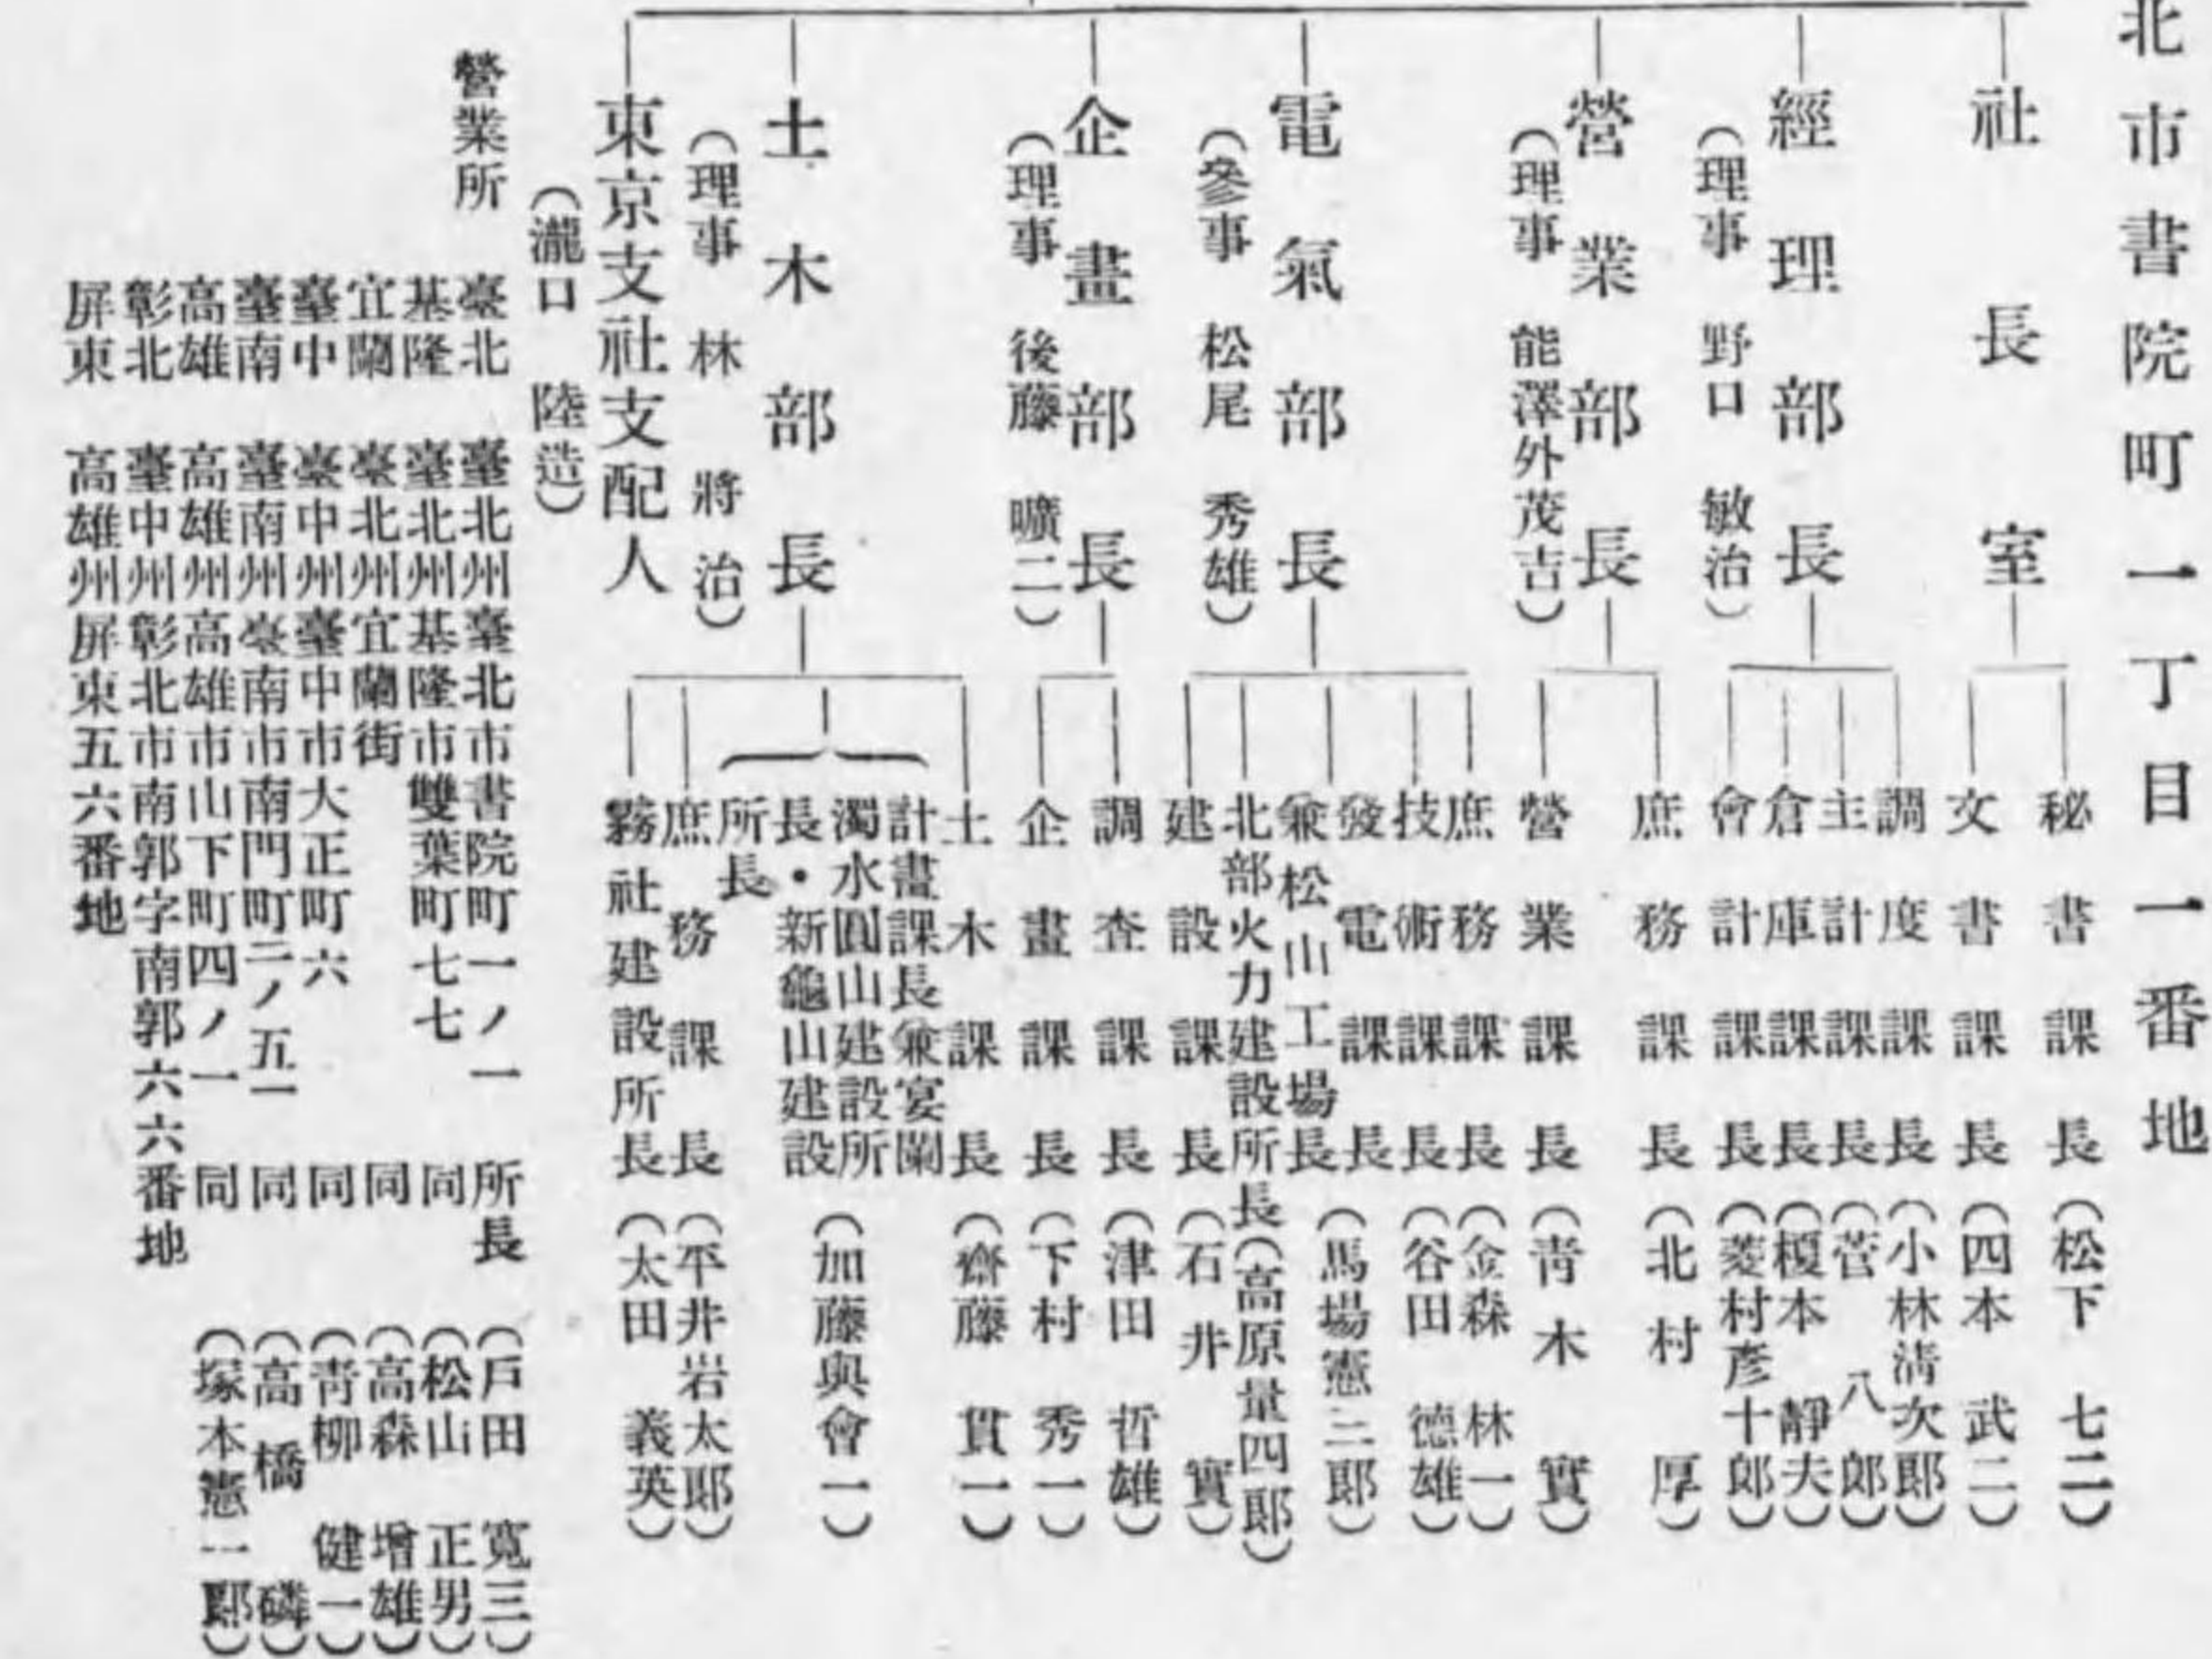 北市書院町一丁目一番地
社長室
秘書課長（松下七二）
文書課長（四本武二）
經理部長
（理事 野口敏治）
調度課長（小林清次郎）
主計課長（菅八郎）
倉庫課長（榎本靜夫）
會計課長（菱村彥十郎）
營業部長
（理事 能澤外茂吉）
庶務課長（北村厚）
營業課長（靑木實）
電氣部長
（參事 松尾秀雄）
庶務課長（金森林一）
技術課長（谷田德雄）
發電課長
兼松山工場長（馬場憲三郎）
北部火力建設所長（高原量四郎）
建設課長（石井實）
企畫部長
（理事 後藤曠二）
調查課長（津田哲雄）
企畫課長（下村秀一）
土木部長
（理事 林將治）
土木課長（齋藤貫一）
計畫課長兼宴關
濁水圓山建設所
長・新龜山建設
所長
（加藤與會一）
庶務課長（平井岩太郎）
霧社建設所長（太田義英）
東京支社支配人
（瀧口陸造）
營業所
臺北 臺北州臺北市書院町一ノ一 所長（戶田寬三）
基隆 臺北州基隆市雙葉町七七 同（松山正男）
宜蘭 臺北州宜蘭街 同（高森增雄）
臺中 臺中州臺中市大正町六 同（靑柳健一）
臺南 臺南州臺南市南門町二ノ五一 同（高橋磷）
高雄 高雄州高雄市山下町四ノ一 同（塚本憲一郎）
彰北 臺中州彰北市南郭字南郭六六番地
屏東 高雄州屏東五六番地